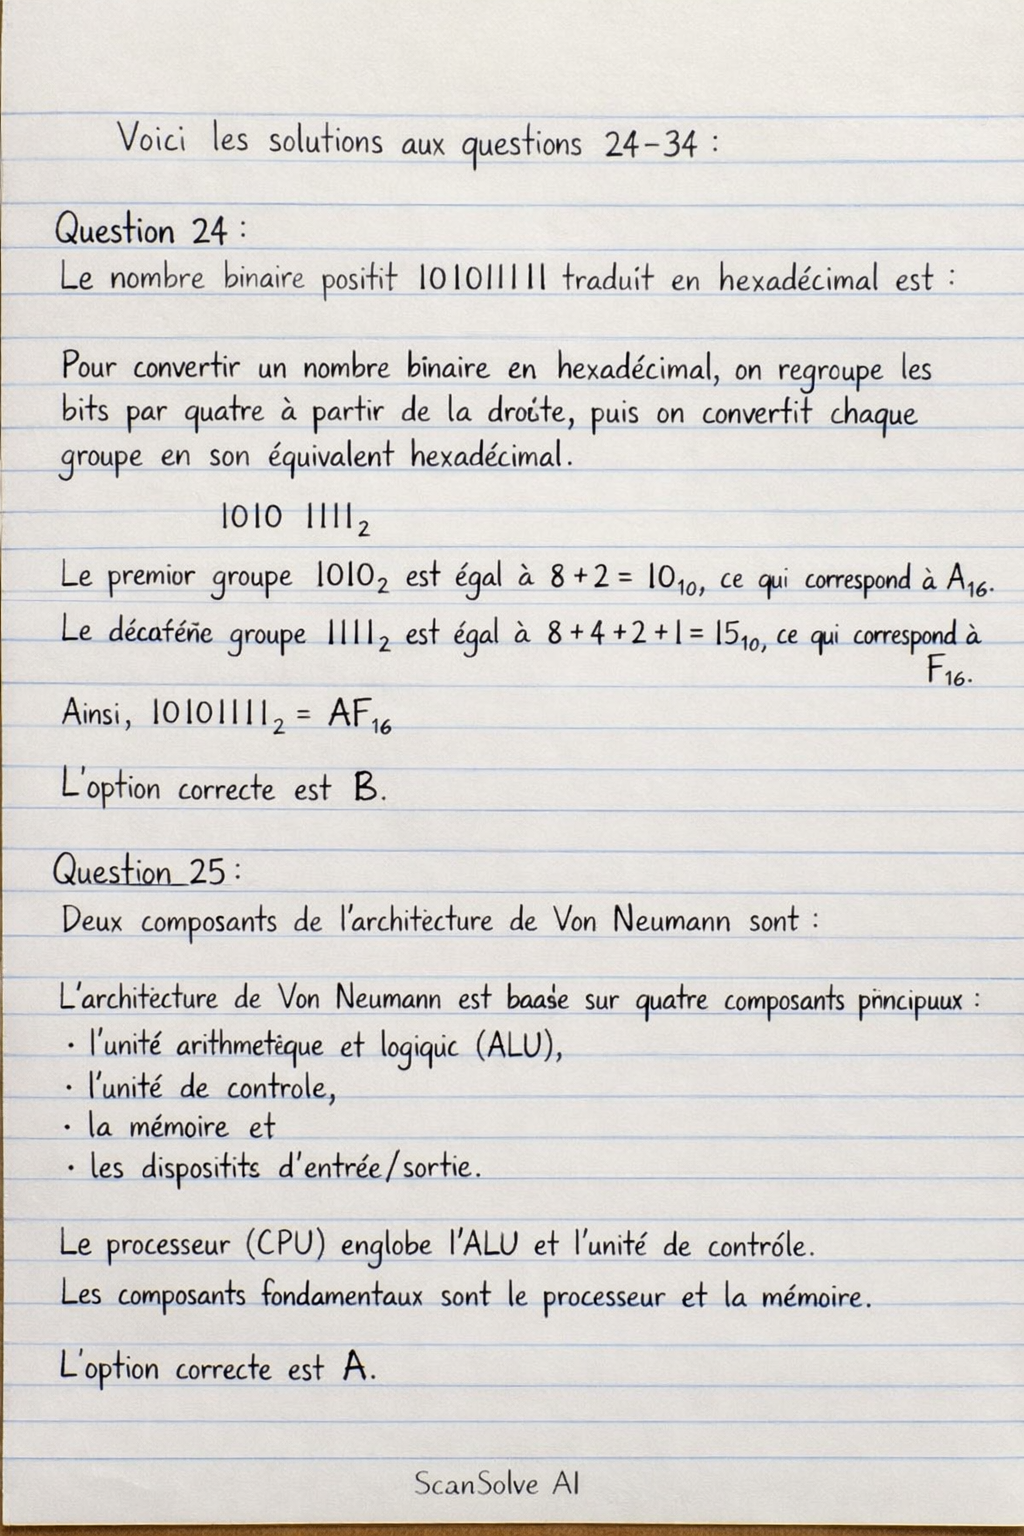 Voici les solutions aux questions 24-34 :
Question 24 :
Le nombre binaire positit 101011111 traduit en hexadécimal est :
Pour convertir un nombre binaire en hexadécimal, on regroupe les
bits par quatre à partir de la droite, puis on convertit chaque
groupe en son équivalent hexadécimal.
1010 1111₂
Le premior groupe 1010₂ est égal à 8+2 = 10₁₀, ce qui correspond à A₁₆.
Le décaféñe groupe 1111₂ est égal à 8+4+2+1 = 15₁₀, ce qui correspond à
F₁₆.
Ainsi, 10101111₂ = AF₁₆
L'option correcte est B.
Question 25 :
Deux composants de l'architecture de Von Neumann sont :
L'architecture de Von Neumann est baaśe sur quatre composants principuux :
· l'unité arithmetèque et logiquic (ALU),
· l'unité de controle,
· la mémoire et
· les dispositits d'entrée/sortie.
Le processeur (CPU) englobe l'ALU et l'unité de contróle.
Les composants fondamentaux sont le processeur et la mémoire.
L'option correcte est A.
ScanSolve AI